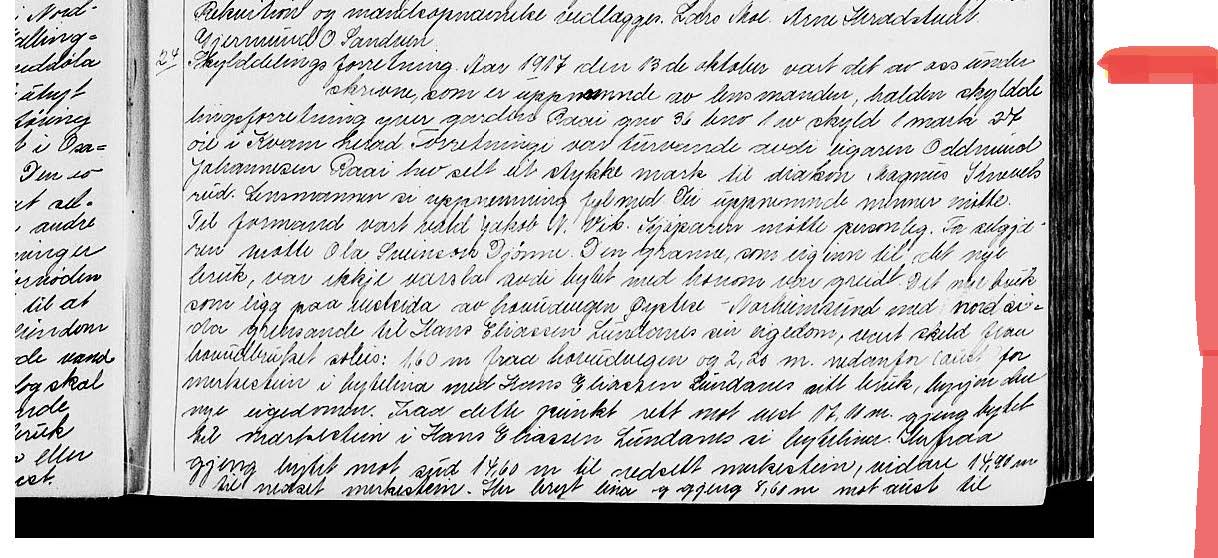 Nord-
alling=
neddøla
i
i Osa=
Den eo
at sel-
andre
ninger
til at
Eiendom
de vand
og skal
ende
bruk
eller
Rekvisition og mandsopnævnelse vedlægges. Lars Moe. Arne Stradstveit
Gjermund O. Sandven
24 Skylddelingsforretning. Aar 1917 den 13de oktober vart det av oss under
skrivne, som er uppnemnde av lensmanden, halden skyldde
lingsforretning yver garden Raai gno 36 bno 1 av skyld 1 mark 27
øre i Kvam herad. Forretningi var turvande avdi eigaren Oddmund
Johannesen Raai hev selt eit stykke mark til drakon Magnus
rud. Lensmannen si uppnemning fyl med. Dei uppnemnde menner møtte.
Til formand vart vald Jakob N. Vik. Kjøparen møtte personleg. For selja-
ren møtte Ola Sveinson Tjønne. Den granne, som eig inn til det nye
bruk, var ikkje varsla avdi bytet med honom var greidt. Det nye bruk
som ligg paa vestsida av hovudvegen Øystese - Norheimsund med nord si=
da grensande til Hans Eliassen Lundanes sin eigedom, vart skild fraa
hovudbruket soleis: 1,60 m fraa hovudvegen og 2,20 m. nedanfor (aust for
merkestein i bytelina med Hans Eliassen Lundanes sitt bruk, byrjar den
nye eigedomen. Fraa dette punkt rett mot vest 17, m. gjeng bytet
til merkestein i Hans Eliassen Lundanes si byteline. Herfraa
gjeng bytet mot syd 14,60 m til nedsett merkestein, vidare 14,90 m
til nedset merkestein. Her bryt lina og gjeng 8,60 m mot aust til